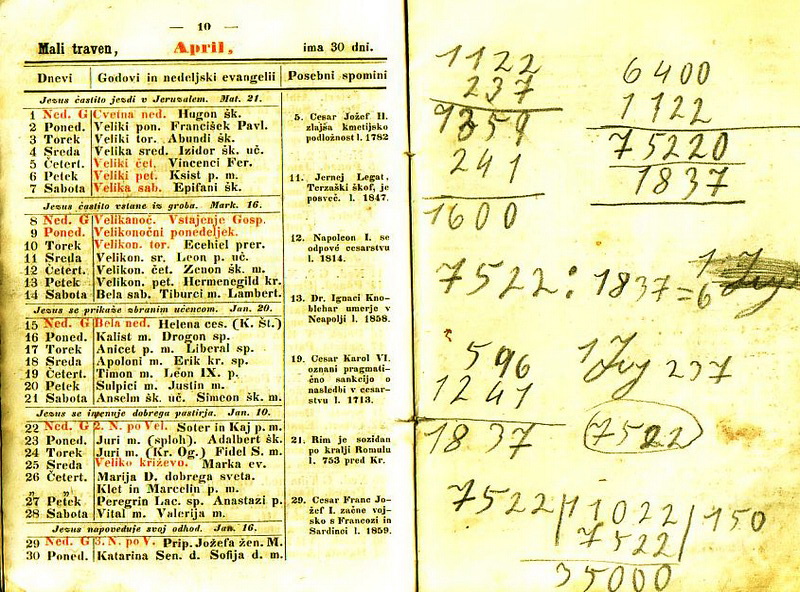 — 10 —
Mali traven, April, ima 30 dni.
Dnevi Godovi in nedeljski evangelii Posebni spomini
Jezus častito jezdi v Jeruzalem. Mat. 21.
1 Ned. G Cvetna ned. Hugon šk.
2 Poned. Veliki pon. Frančišek Pavl.
3 Torek Veliki tor. Abundi šk.
4 Sreda Velika sred. Izidor šk. uč.
5 Četert. Veliki čet. Vincenci Fer.
6 Petek Veliki pet. Ksist p. m.
7 Sabota Velika sab. Epifani šk.
Jezus častito vstane iz groba. Mark. 16.
8 Ned. G Velikanoč. Vstajenje Gosp.
9 Poned. Velikonočni ponedeljek.
10 Torek Velikon. tor. Ecehiel prer.
11 Sreda Velikon. sr. Leon p. uč.
12 Četert. Velikon. čet. Zenon šk. m.
13 Petek Velikon. pet. Hermenegild kr.
14 Sabota Bela sab. Tiburci m. Lambert.
Jezus se prikaže zbranim učencom. Jan. 20.
15 Ned. G Bela ned. Helena ces. (K. št.)
16 Poned. Kalist m. Drogon sp.
17 Torek Anicet p. m. Liberal sp.
18 Sreda Apoloni m. Erik kr. sp.
19 Četert. Timon m. Leon IX. p.
20 Petek Sulpici m. Justin m.
21 Sabota Anselm šk. uč. Simeon šk. m.
Jezus se imenuje dobrega pastirja. Jan. 10.
22 Ned. G 2. N. po Vel. Soter in Kaj p. m.
23 Poned. Juri m. (sploh). Adalbert šk.
24 Torek Juri m. (Kr. Og.) Fidel S. m.
25 Sreda Veliko križevo. Marka ev.
26 Četert. Marija D. dobrega sveta.
„ „ Klet in Marcelin p. m.
27 Petek Peregrin Lac. sp. Anastazi p.
28 Sabota Vital m. Valerija m.
Jezus napoveduje svoj odhod. Jan. 16.
29 Ned. G 3. N. po V. Prip. Jožefa žen. M.
30 Poned. Katarina Sen. d. Sofija d. m.
5. Cesar Jožef II.
zlajša kmetijsko
podložnost l. 1782
11. Jernej Legat,
Terzaški škof, je
posveč. l. 1847.
12. Napoleon I. se
odpové cesarstvu
l. 1814.
13. Dr. Ignaci Kno-
blehar umerje v
Neapolji l. 1858.
19. Cesar Karol VI.
oznani pragmati-
čno sankcijo o
nasledbi v cesar-
stvu l. 1713.
21. Rim je sozidan
po kralji Romulu
l. 753 pred Kr.
29. Cesar Franc Jo-
žef I. začne voj-
sko s Francozi in
Sardinci l. 1859.
1122
237
1359
241
1600
6400
1122
75220
1837
7522 : 1837 = 6
596
1241
1837
237
7522
7522 / 11022 / 150
7522
35000